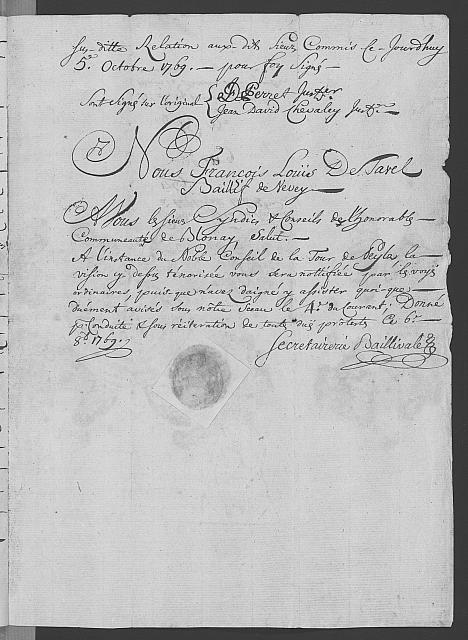 Sus-ditte Relation aux-dit Sieur Commis Ce-Jourd'huy
5.e Octobre 1769. — pour foy Signé —
Sont Signés sur l'original { D Perret Just.er
Jean David Chevaley Just.er —
Nous François Loüis De Tavel
Baillif de Vevey —
A Vous les Sieurs Syndics & Conseils de l'Honorable —
Communauté de Blonay, Salut. —
A l'instance du Noble Conseil de la Tour de Peylas la
vision cy dessus ténorisée vous sera notifiée par les voyes
ordinaires, puis que n'avez daigné y assister quoi-que —
Duement avisés sous notre Sceau le 4.e du Courant; Donné
p.r Conduite & sous réiteration de toute dues protests Ce 6.e
8.bre 1769.
Secretairerie Baillivale